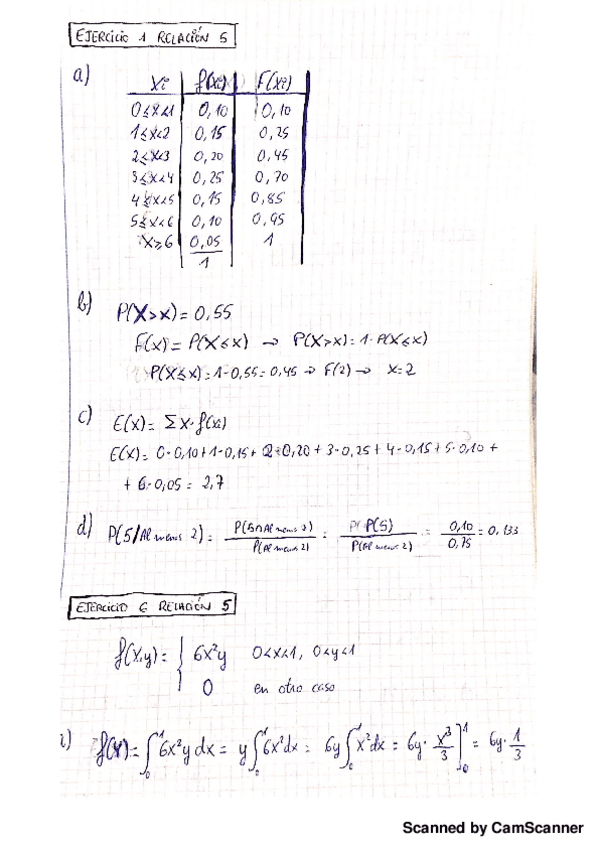 EJERCICIO 1 RELACIÓN 5
a)
xi f(xi) F(xi)
0≤x<1 0,10 0,10
1≤x<2 0,15 0,25
2≤x<3 0,20 0,45
3≤x<4 0,25 0,70
4≤x<5 0,15 0,85
5≤x<6 0,10 0,95
x≥6 0,05 1
1
b) P(X>x)=0,55
F(x)=P(X≤x) → P(X>x)=1-P(X≤x)
P(X≤x)=1-0,55=0,45 → F(2) → x=2
c) E(x)= Σx·f(xi)
E(x)= 0·0,10+1·0,15+2·0,20+3·0,25+4·0,15+5·0,10+
+6·0,05=2,7
d) P(5/Al menos 2)= P(5∩Al menos 2)/P(Al menos 2) = P(5)/P(Al menos 2) = 0,10/0,75 = 0,133
EJERCICIO 6 RELACIÓN 5
f(x,y)= { 6x²y 0<x<1, 0<y<1
0 en otro caso
i) f(y)=∫₀¹6x²y dx = y∫₀¹6x²dx = 6y∫₀¹x²dx = 6y·x³/3]₀¹ = 6y·1/3
Scanned by CamScanner